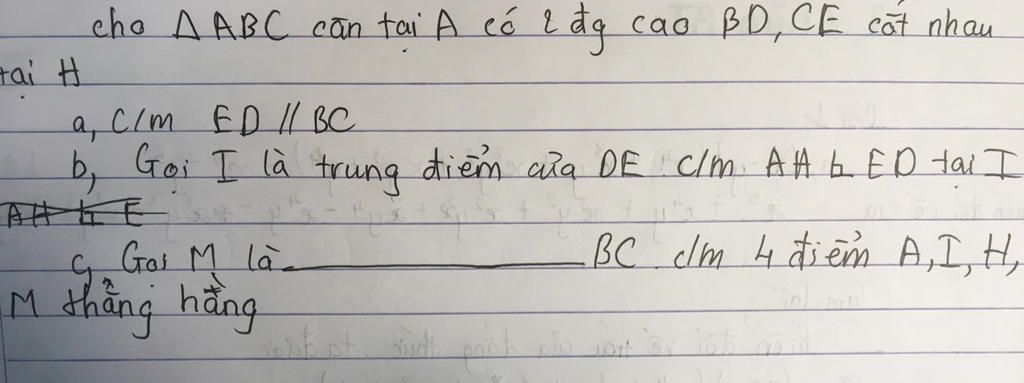 cho △ABC cân tại A có 2 đg cao BD, CE cắt nhau
tại H
a, C/m ED // BC
b, Gọi I là trung điểm của DE c/m. AH ⊥ ED tại I
AH ⊥ E
c, Gọi M là ____________ BC. c/m 4 điểm A, I, H,
M thẳng hằng